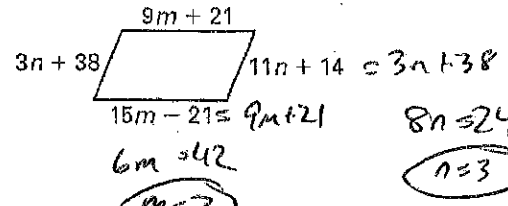 9m + 21
3n + 38
11n + 14 = 3n + 38
15m − 21 = 9m + 21
8n = 24
6m = 42
n = 3